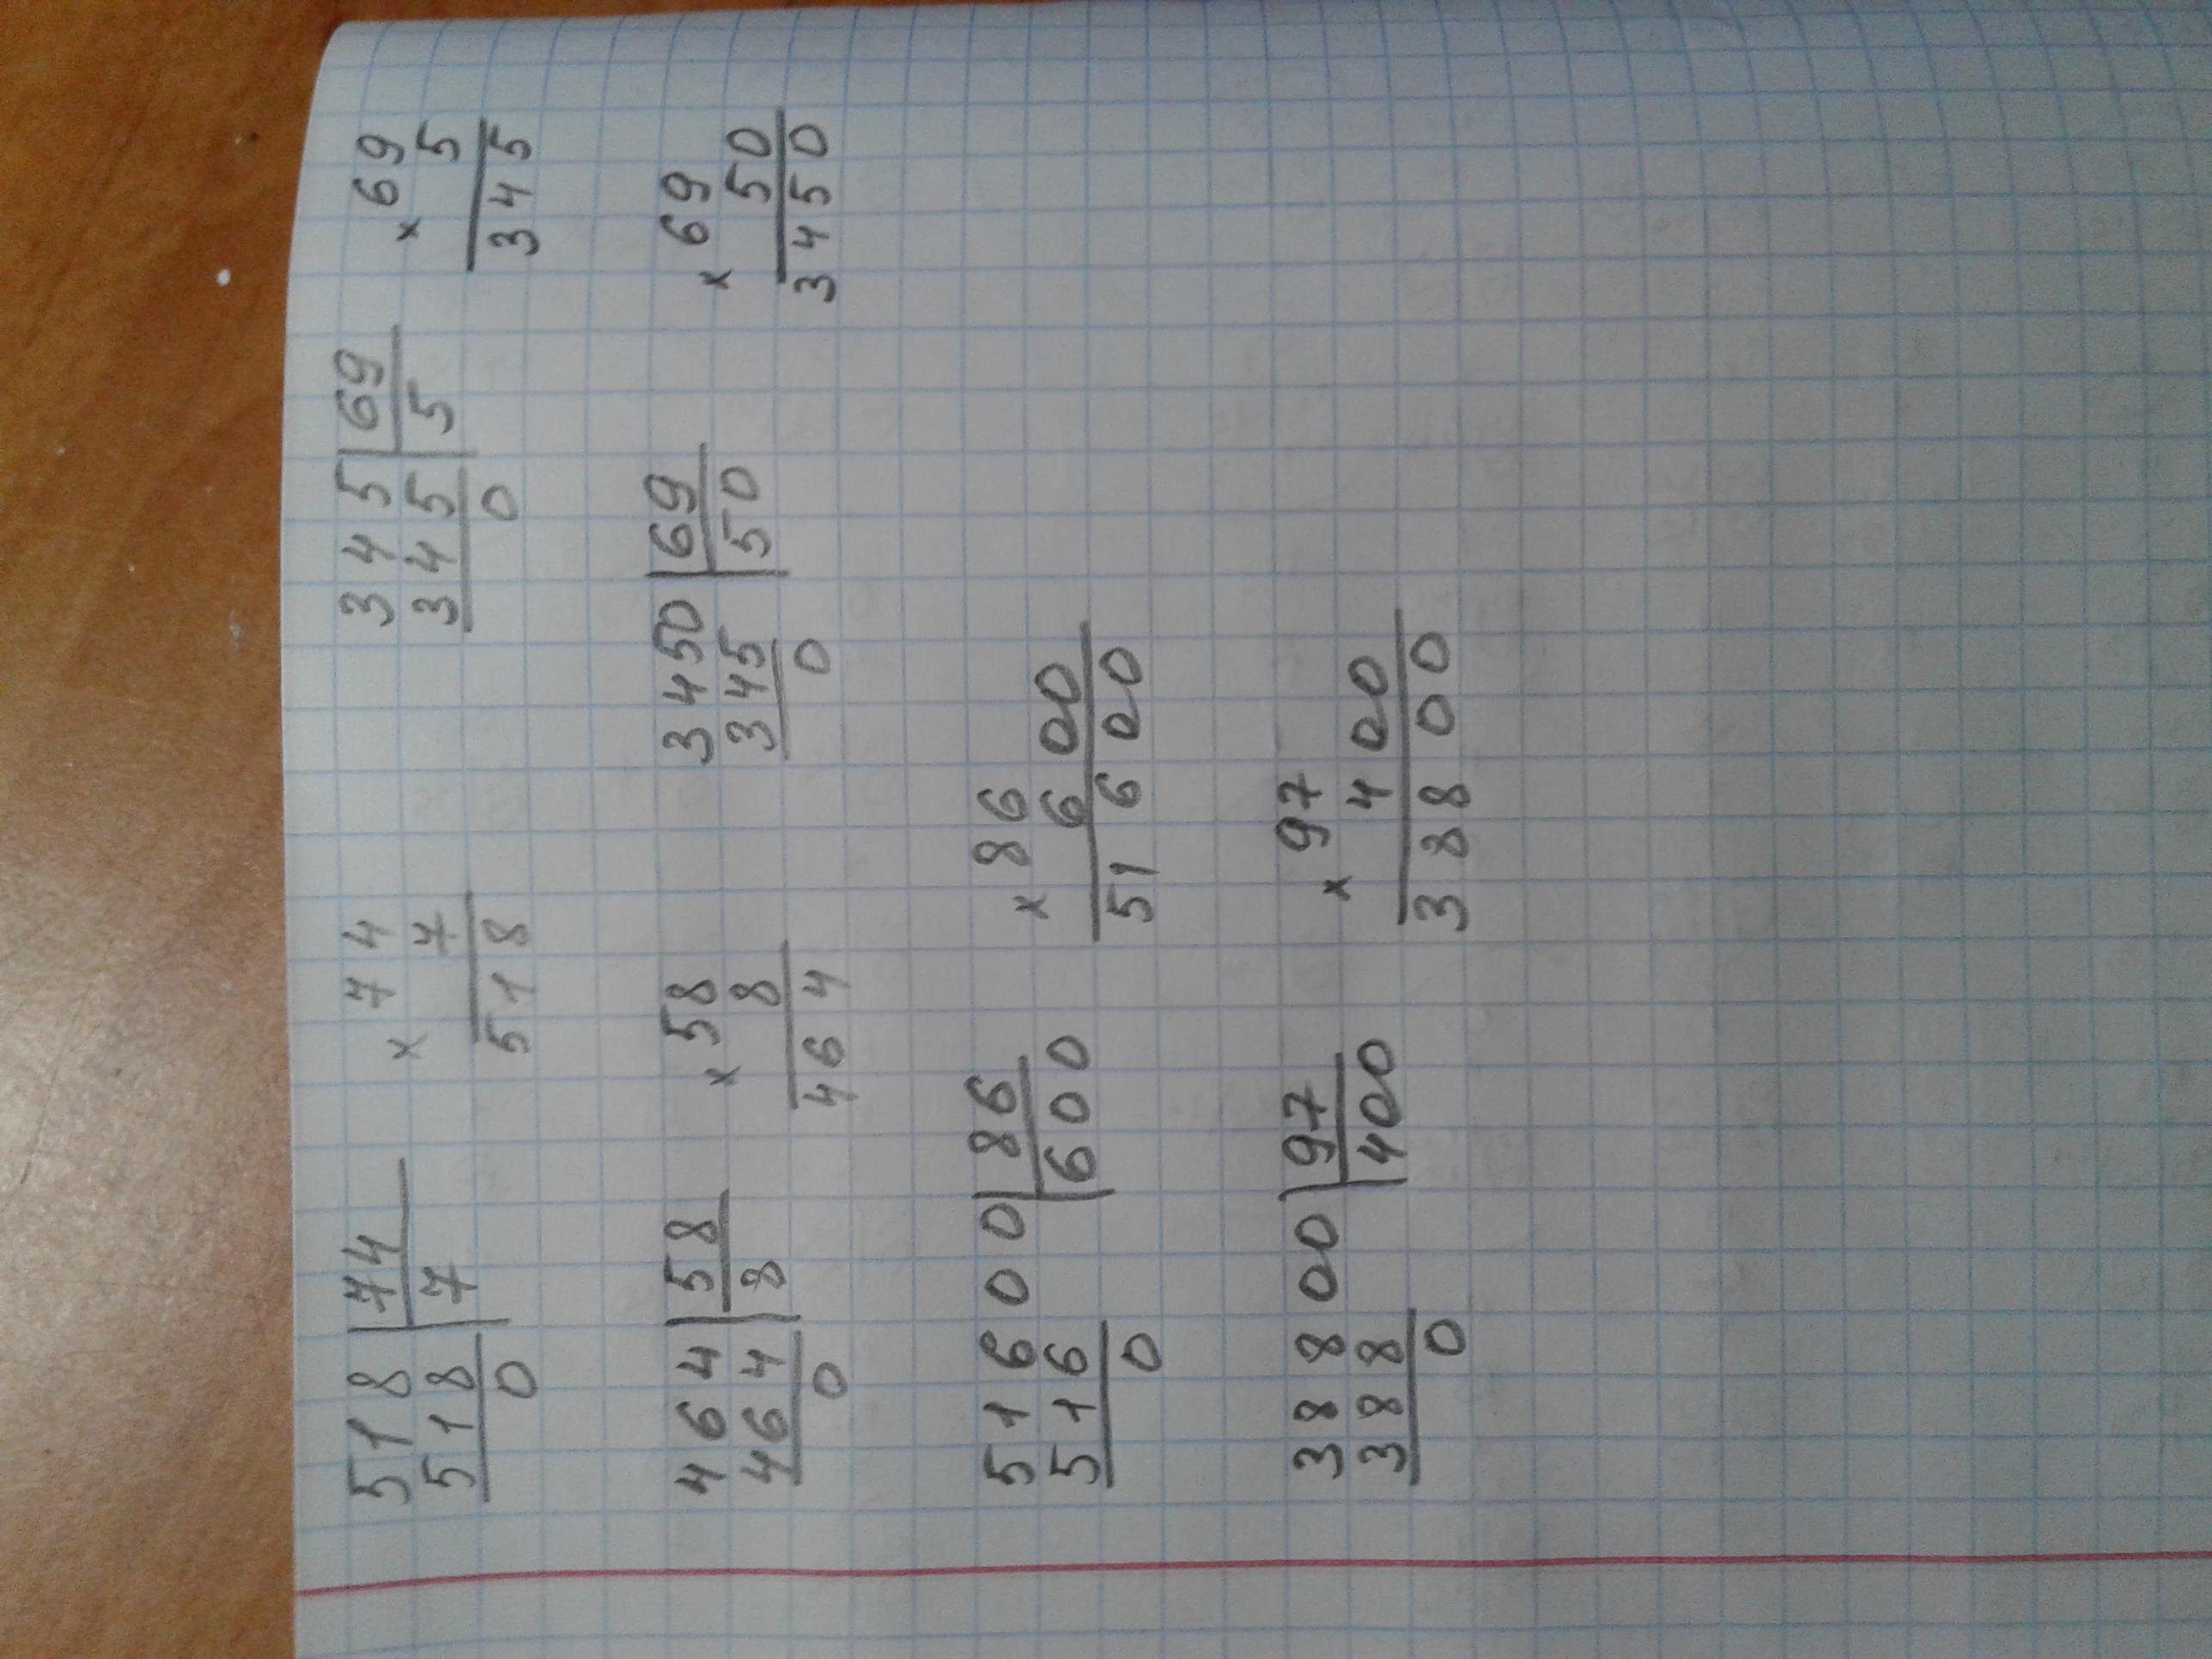 518 | 74   × 74   345 | 69   × 69
518 | 7   7   345 | 5   5
0   518   0   345
464 | 58   × 58   3450 | 69   × 69
464 | 8   8   345 | 50   50
0   464   0   3450
51600 | 86   × 86
516 | 600   600
0   51600
38800 | 97   × 97
388 | 400   400
0   38800